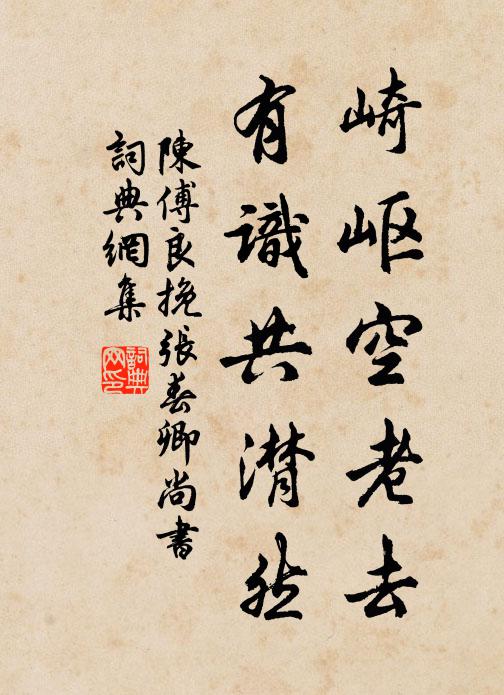 崎岖空老去
有識共潸然
陳傅良挽張春卿尚書
詞典網集
詞典
网印